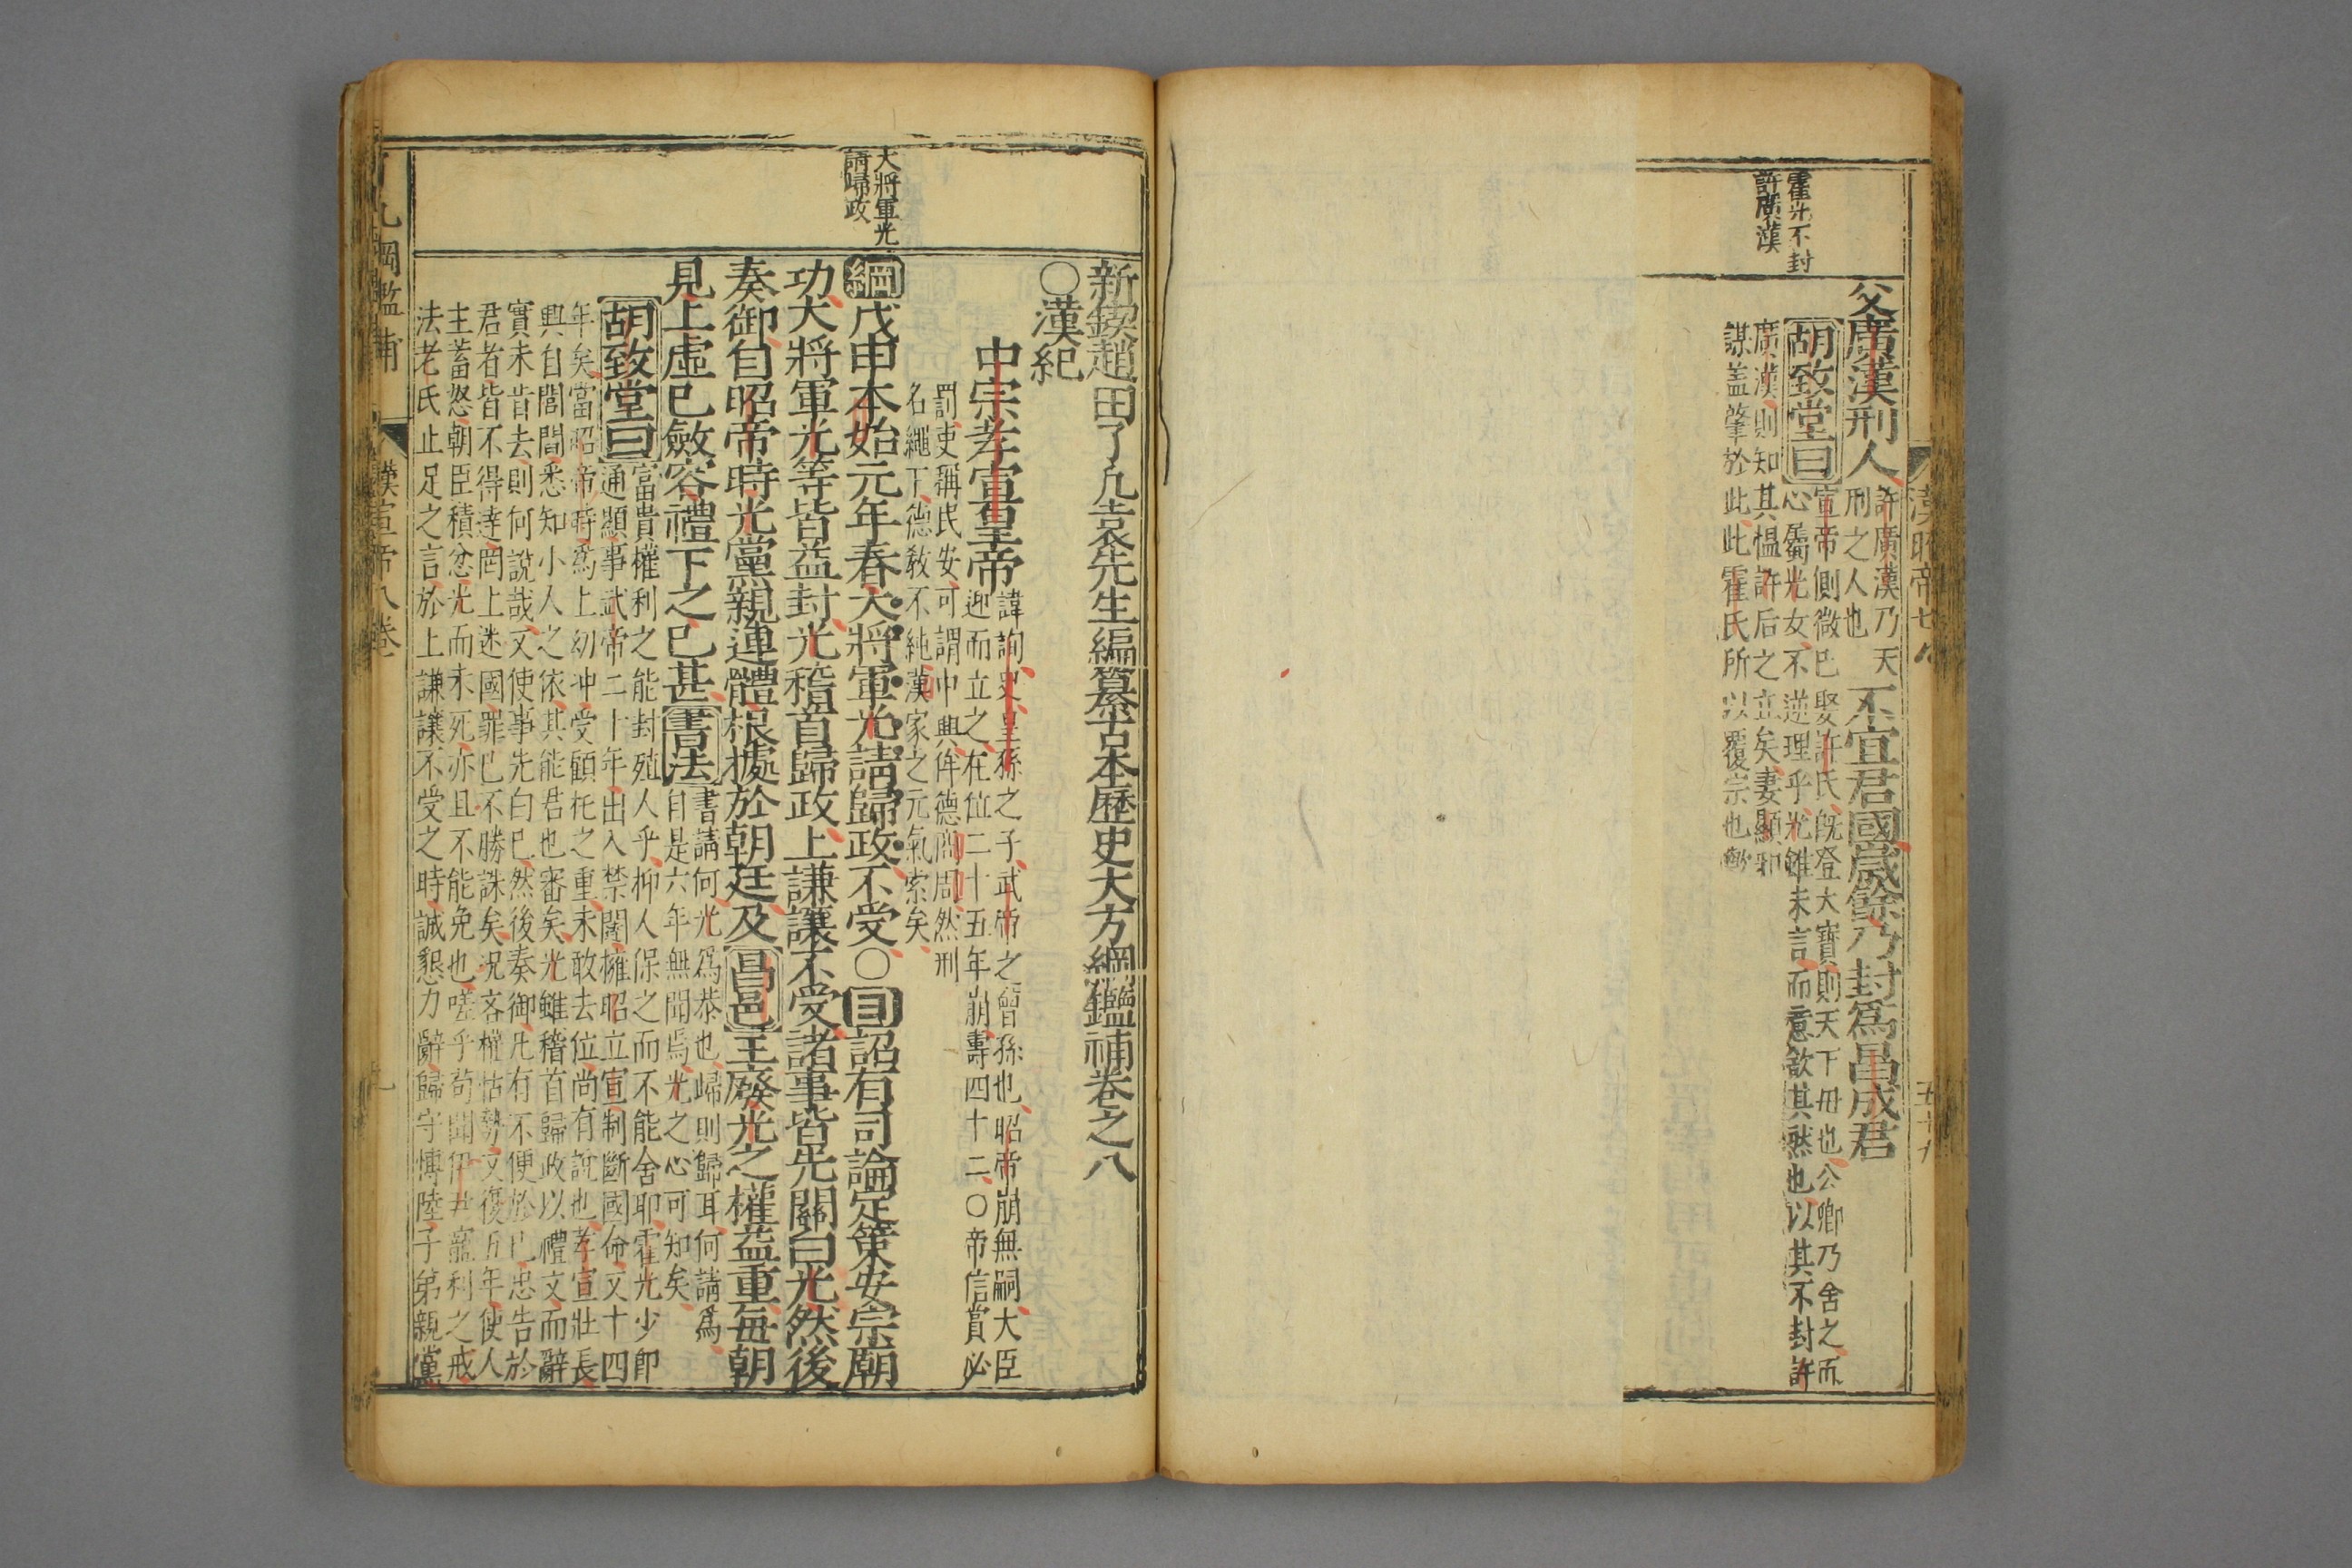 漢昭帝七
五十九
霍光不封
許廣漢
父廣漢刑人許廣漢乃天刑之人也不宜君國歲餘乃封爲昌成君
胡致堂曰宣帝側微巳娶許氏旣登大寶則天下母也公卿乃舍之而
心屬光女不逆理乎光雖未言而意欲其然也以其不封許
廣漢則知其愠許后之立矣妻顯邪
謀盖肇於此此霍氏所以覆宗也歟
新鍥趙田了凡袁先生編纂古本歷史大方綱鑑補卷之八
○漢紀
中宗孝宣皇帝諱詢史皇孫之子武帝之曾孫也昭帝崩無嗣大臣
迎而立之在位二十五年崩壽四十二○帝信賞必
罰吏稱民安可謂中興侔德商周然刑
名繩下德教不純漢家之元氣索矣
大將軍光
請歸政
綱戊申本始元年春大將軍光請歸政不受○目詔有司論定策安宗廟
功大將軍光等皆益封光稽首歸政上謙讓不受諸事皆先關白光然後
奏御自昭帝時光黨親連體根據於朝廷及昌邑王廢光之權益重每朝
見上虛已斂容禮下之已甚書法書請何光爲恭也歸則歸耳何請爲
自是六年無聞焉光之心可知矣
胡致堂曰富貴權利之能封殖人乎抑人保之而不能舍耶霍光少卽
通顯事武帝二十年出入禁闥擁昭立宣制斷國命又十四
年矣當昭帝時爲上幼冲受顧托之重未敢去位尚有說也孝宣壯長
興自閭閻悉知小人之依其能君也審矣光雖稽首歸政以禮文而辭
實未肯去則何說哉又使事先白已然後奏御凡有不便於已忠告於
君者皆不得達罔上迷國罪已不勝誅矣況吝權怙勢又復五年使人
主蓄怒朝臣積忿光而未死亦且不能免也嗟乎苟聞伊尹寵利之戒
法老氏止足之言於上謙讓不受之時誠懇力辭歸守博陸子弟親黨
凡綱鑑補
漢宣帝八卷